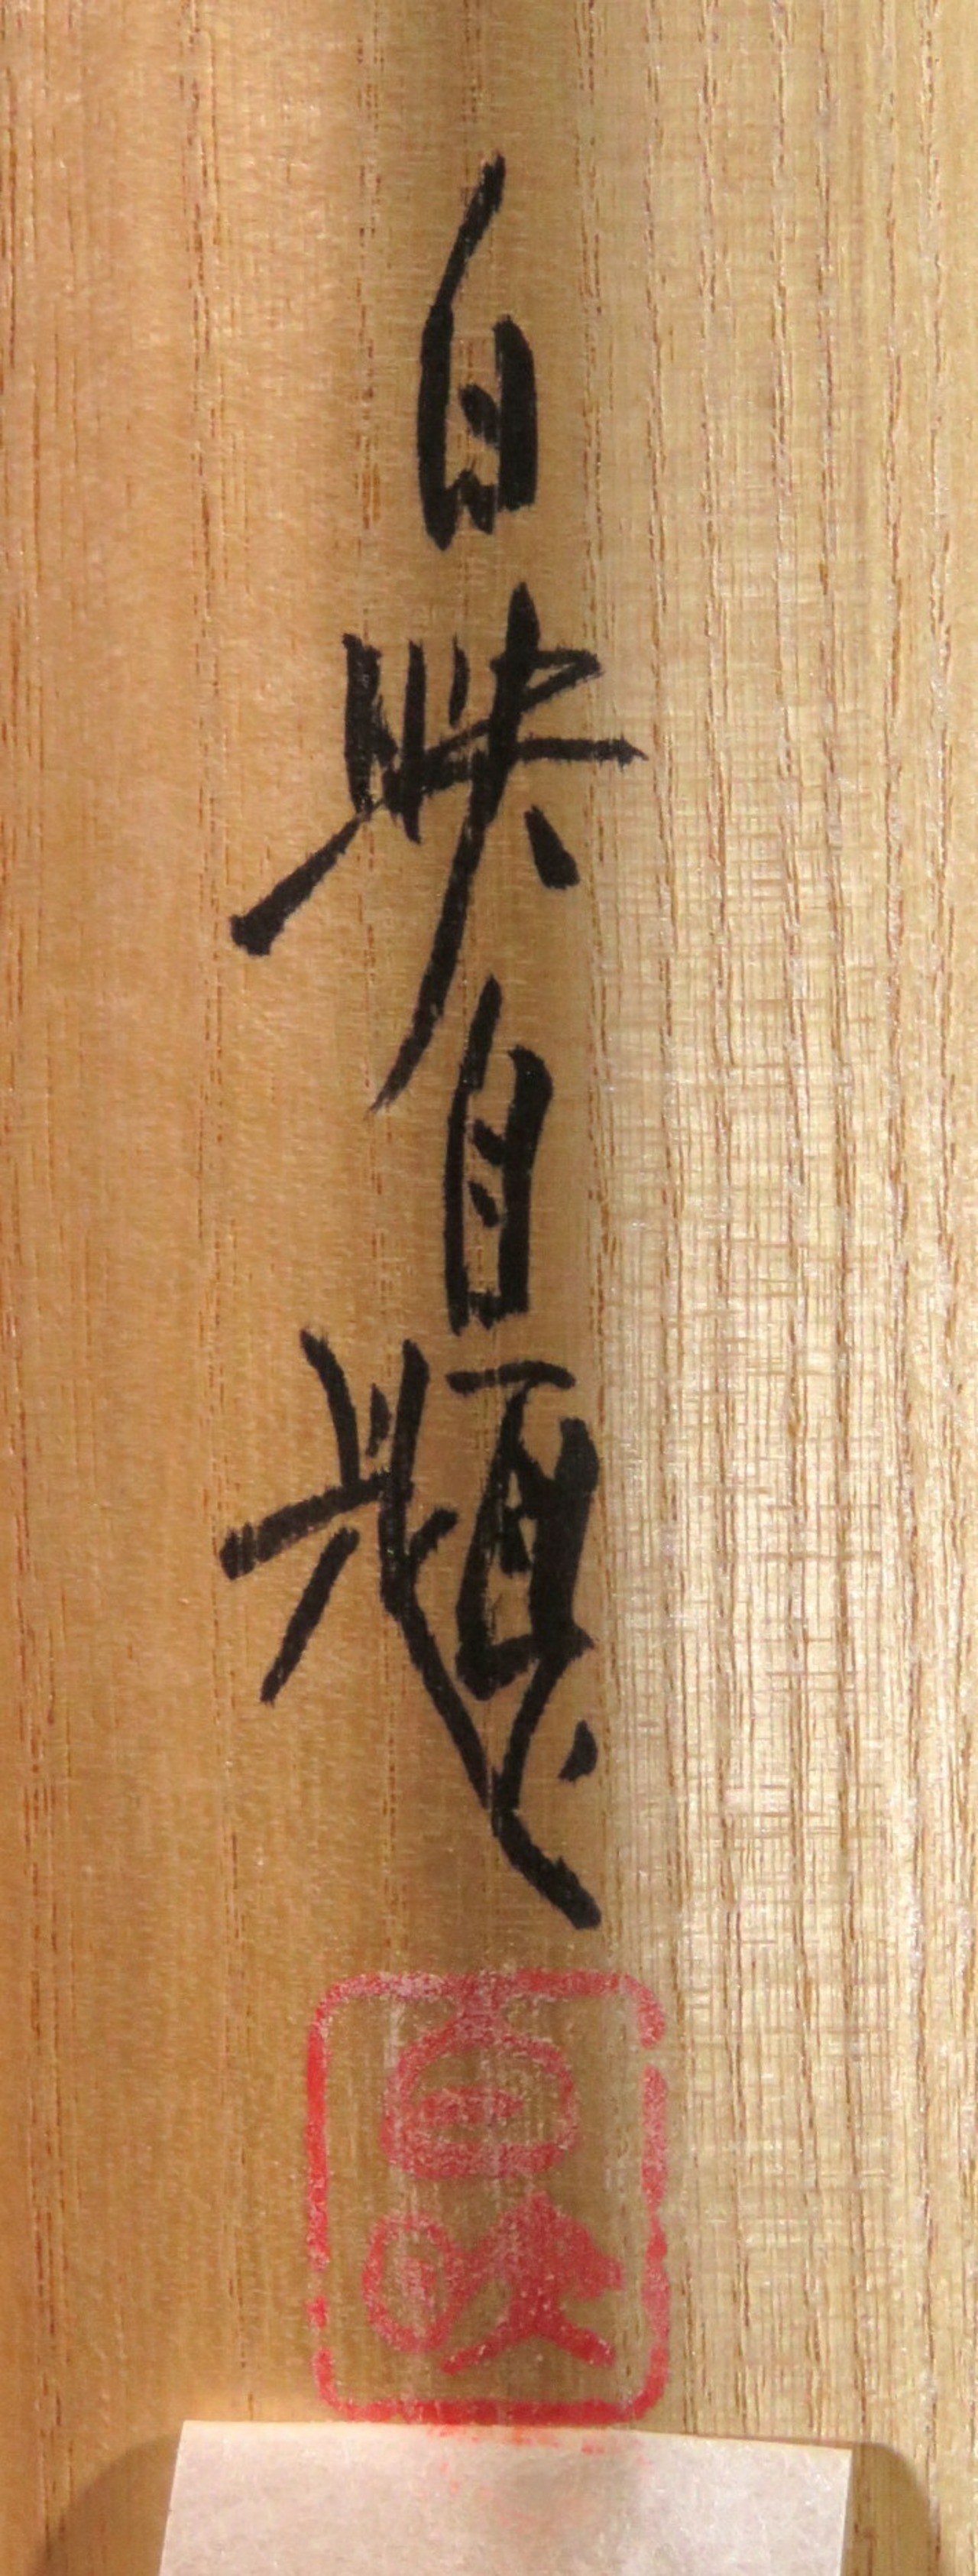 白映自題
白映